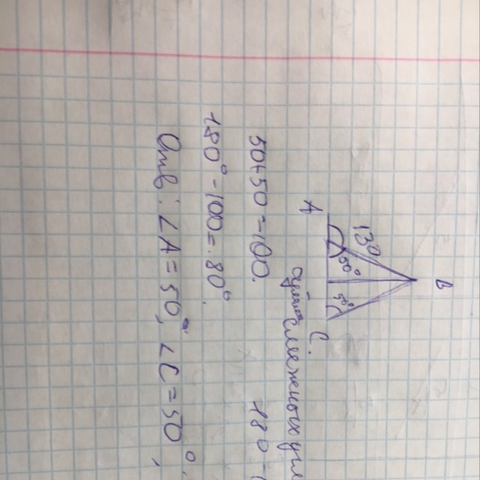 B
130
50°
5°
A
C.
смежных
180-
50+50=100.
180°-100=80°.
Отв: ∠A=50°, ∠C=50°,